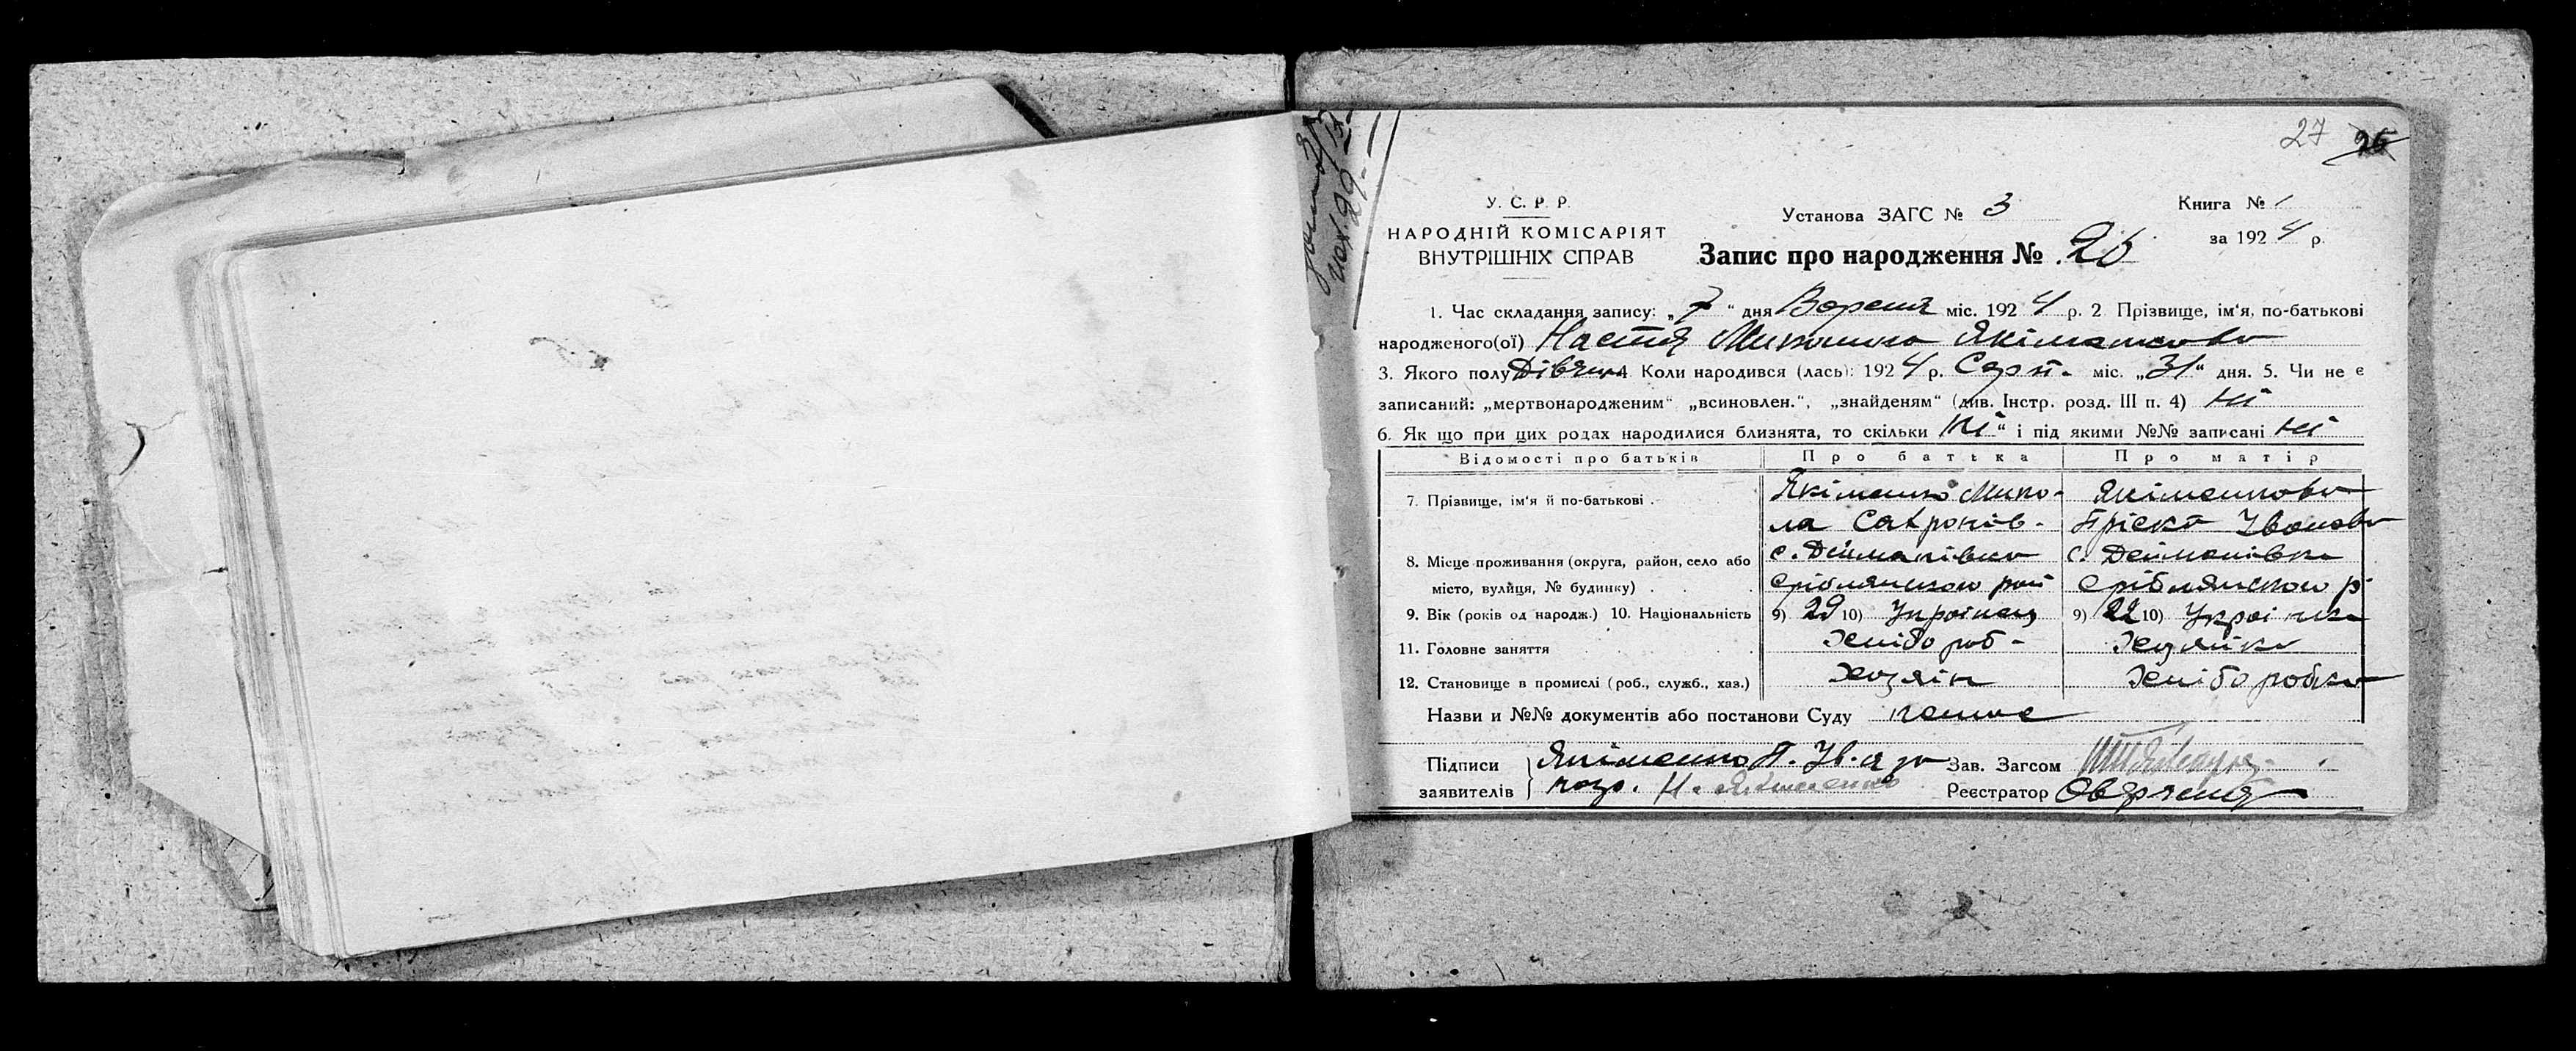 27 26
У. С. Р. Р.
НАРОДНІЙ КОМІСАРІЯТ
ВНУТРІШНІХ СПРАВ
Установа ЗАГС № 3
Книга № 1
за 1924 р.
Запис про народження № 26
1. Час складання запису: „7“ дня Вересня міс. 1924 р. 2 Прізвище, ім‘я, по-батькові
народженого(ої) Настя Микол Якіменкова
3. Якого полу Дівчин 4 Коли народився (лась): 1924 р. Серп. міс. „31“ дня. 5. Чи не є
записаний: „мертвонародженим“ „всиновлен.“, „знайденям“ (див. Інстр. розд. III п. 4) ні
6. Як що при цих родах народилися близнята, то скільки ні“ і під якими №№ записані ні
Відомості про батьків Про батька Про матір
7. Прізвище, ім‘я й по-батькові. Якіменко Мико- Якіменкова
ла Сафронів- Пріська Іванова
8. Місце проживання (округа, район, село або с. Дейманівка с. Дейманівка
місто, вулйця, № будинку) Срiблянського рай Сріблянского р
9. Вік (років од народж.) 10. Національність 9) 29 10) Українец 9) 22 10) Украінка
11. Головне заняття Хлібороб- Хозяйка
12. Становище в промислі (роб., служб., хаз.) Хозяін Хліборобка
Назви и №№ документів або постанови Суду
Підписи Якіменко П. Ів. Зав. Загсом
заявителів Н. Якименко Реєстратор